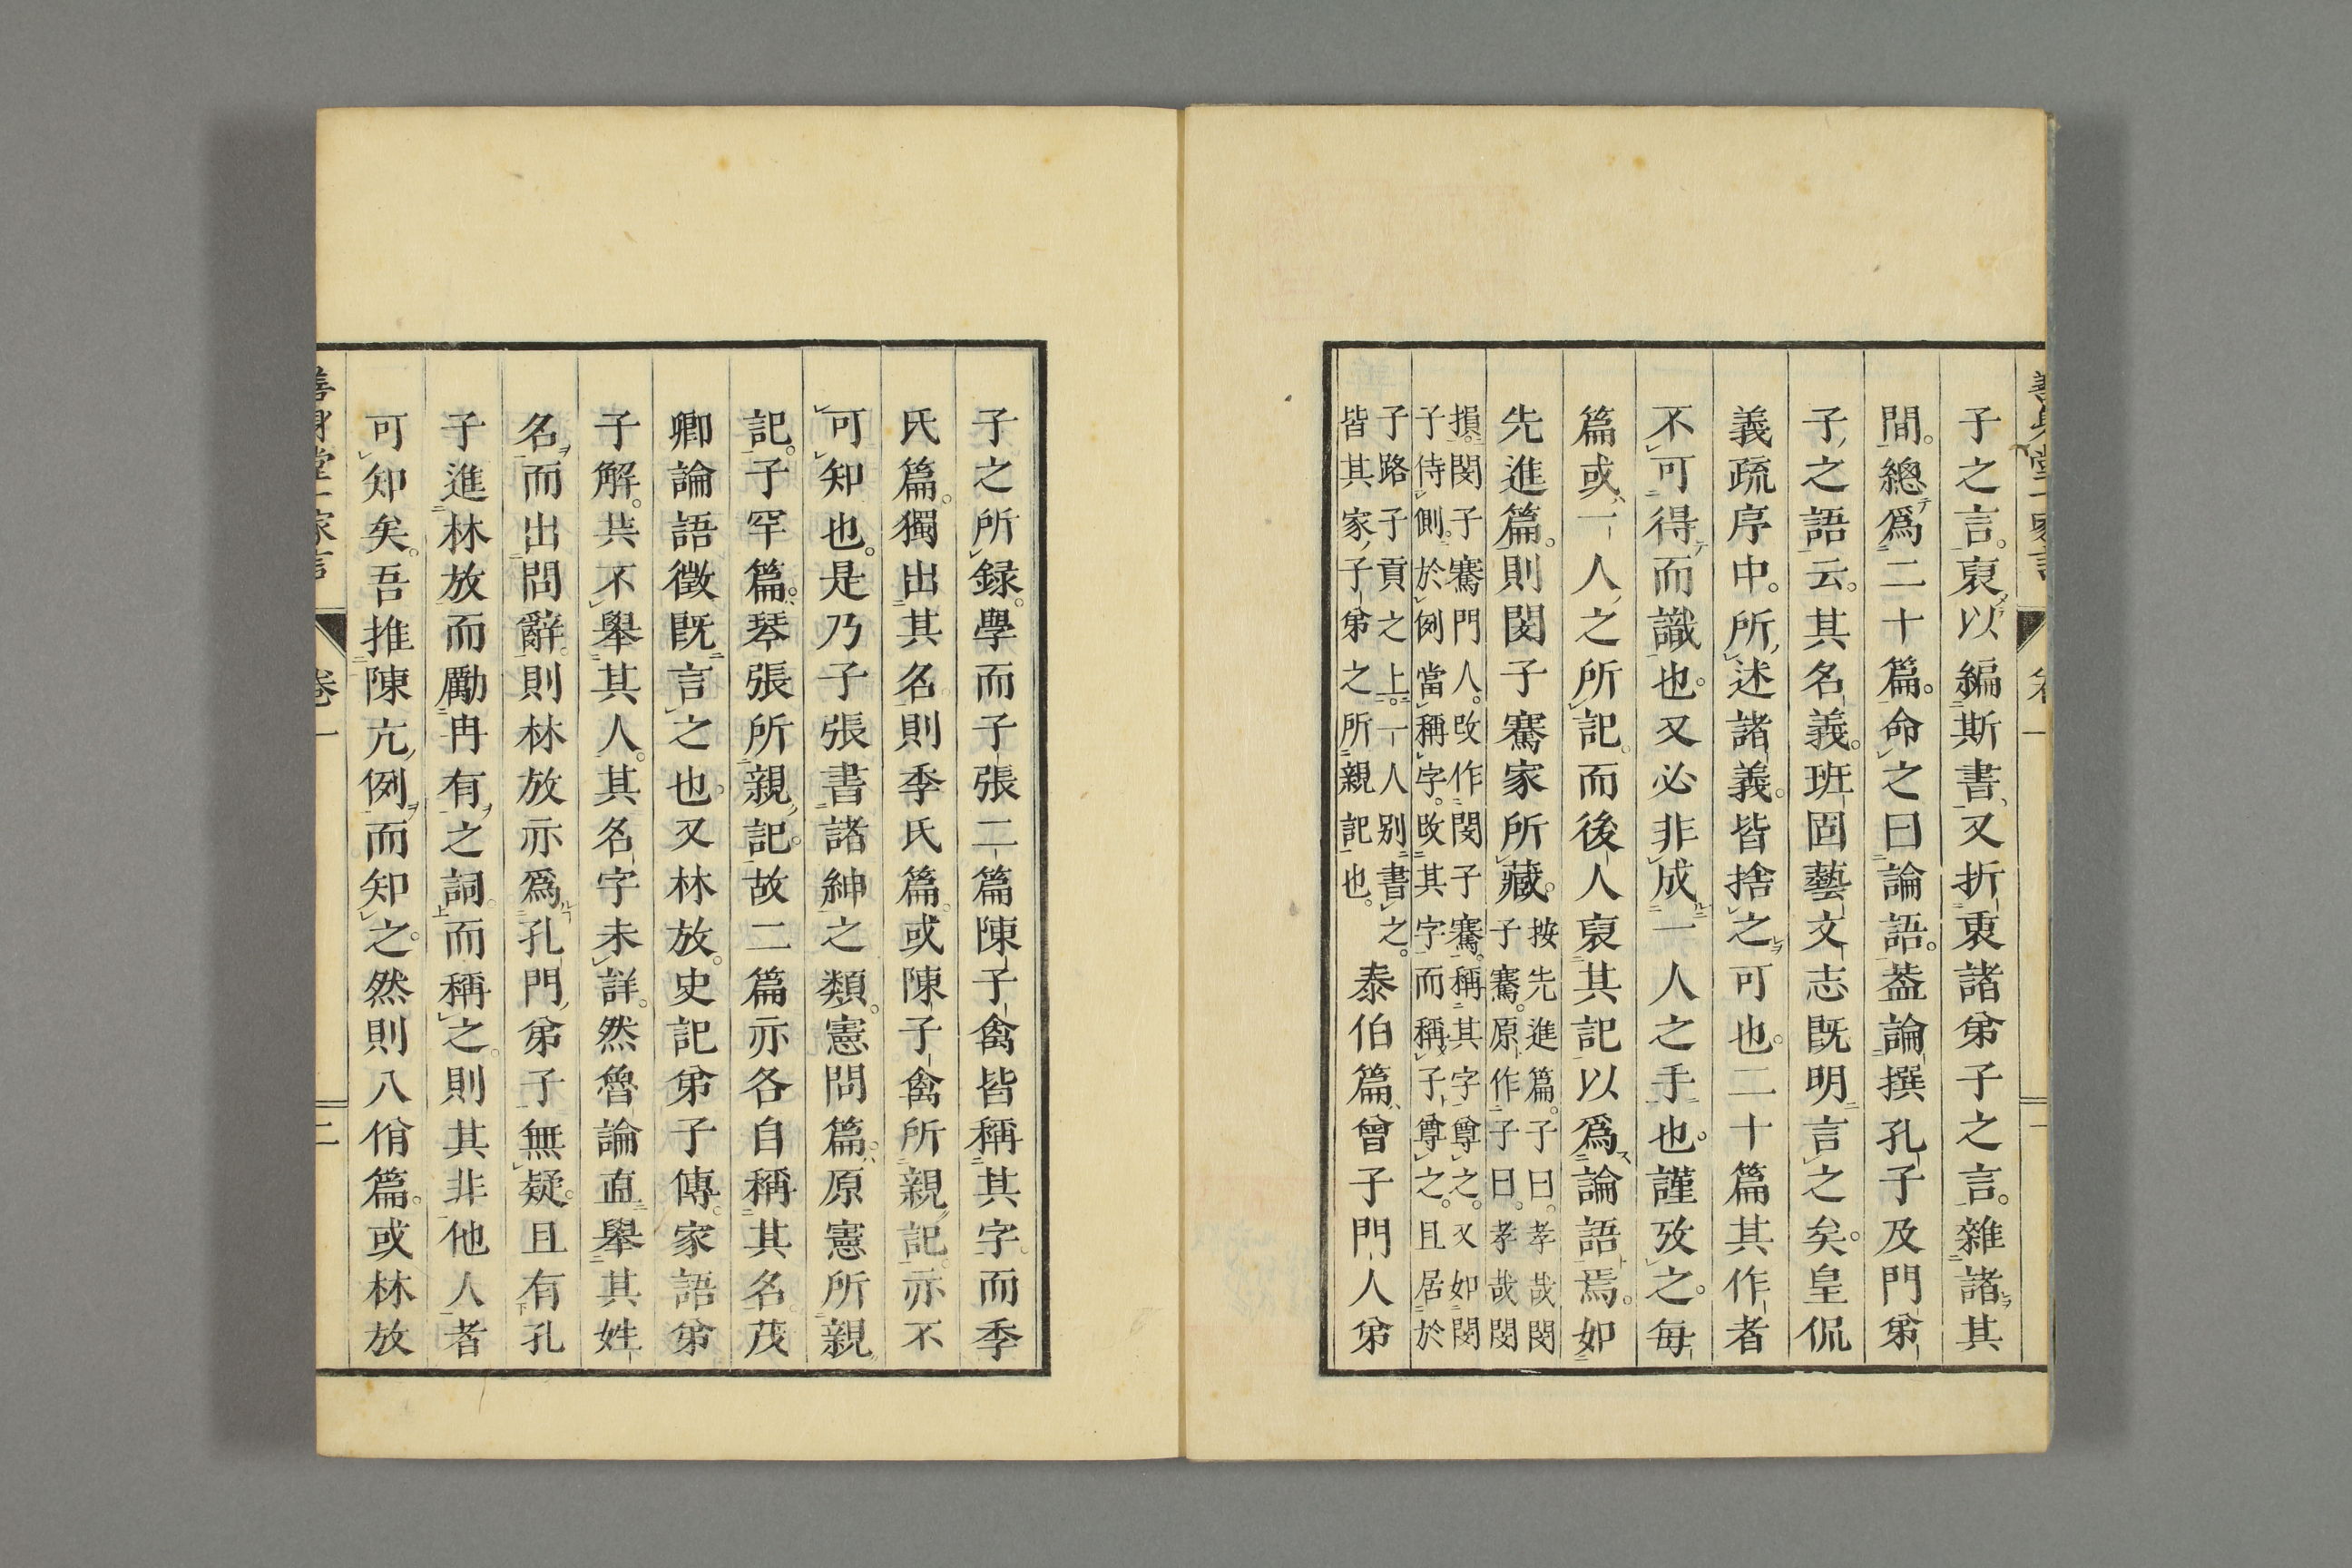 子之言。裒以編斯書、又折衷諸弟子之言。雜諸其
間。總爲二十篇。命之曰論語。蓋論撰孔子及門弟
子之語云。其名義。班固藝文志既明言之矣。皇侃
義疏序中。所述諸義。皆捨之可也。二十篇其作者
不可得而識也。又必非成一人之手也。謹攷之。每
篇或一人之所記。而後人裒其記以爲論語焉。如
先進篇。則閔子騫家所藏。按先進篇。子曰。孝哉閔
子騫。原作子曰。孝哉閔
損。閔子騫門人。改作閔子騫。稱其字尊之。又如閔
子侍側。於例當稱字。改其字而稱子、尊之。且居於
子路子貢之上。一人別書之。
皆其家子弟之所親記也。
泰伯篇、曾子門人弟
子之所録。學而子張二篇陳子禽皆稱其字。而季
氏篇。獨出其名則季氏篇。或陳子禽所親記。亦不
可知也。是乃子張書諸紳之類。憲問篇。原憲所親
記。子罕篇。琴張所親記。故二篇亦各自稱其名。茂
卿論語徵既言之也。又林放。史記弟子傳。家語弟
子解。共不舉其人。其名字未詳。然魯論直舉其姓
名而出問辭。則林放亦爲孔門弟子無疑。且有孔
子進林放而勵冉有之詞。而稱之。則其非他人者
可知矣。吾推陳亢例而知之。然則八佾篇。或林放
卷一
二